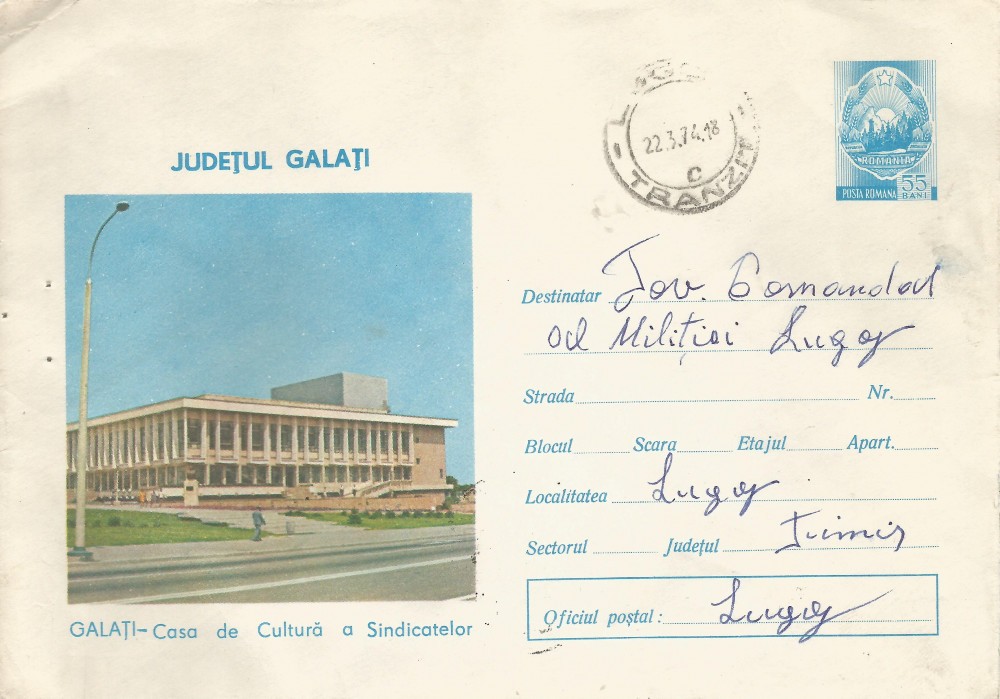 JUDEŢUL GALAŢI
22.3.74.18
C
TRANZIT
ROMANIA
POSTA ROMANA 55 BANI
Destinatar Tov. Comandad
al Miliţiei Lugoj
Strada Nr.
Blocul Scara Etajul Apart.
Localitatea Lugoj
Sectorul Judeţul Timiş
Oficiul poştal: Lugoj
GALAŢI-Casa de Cultură a Sindicatelor